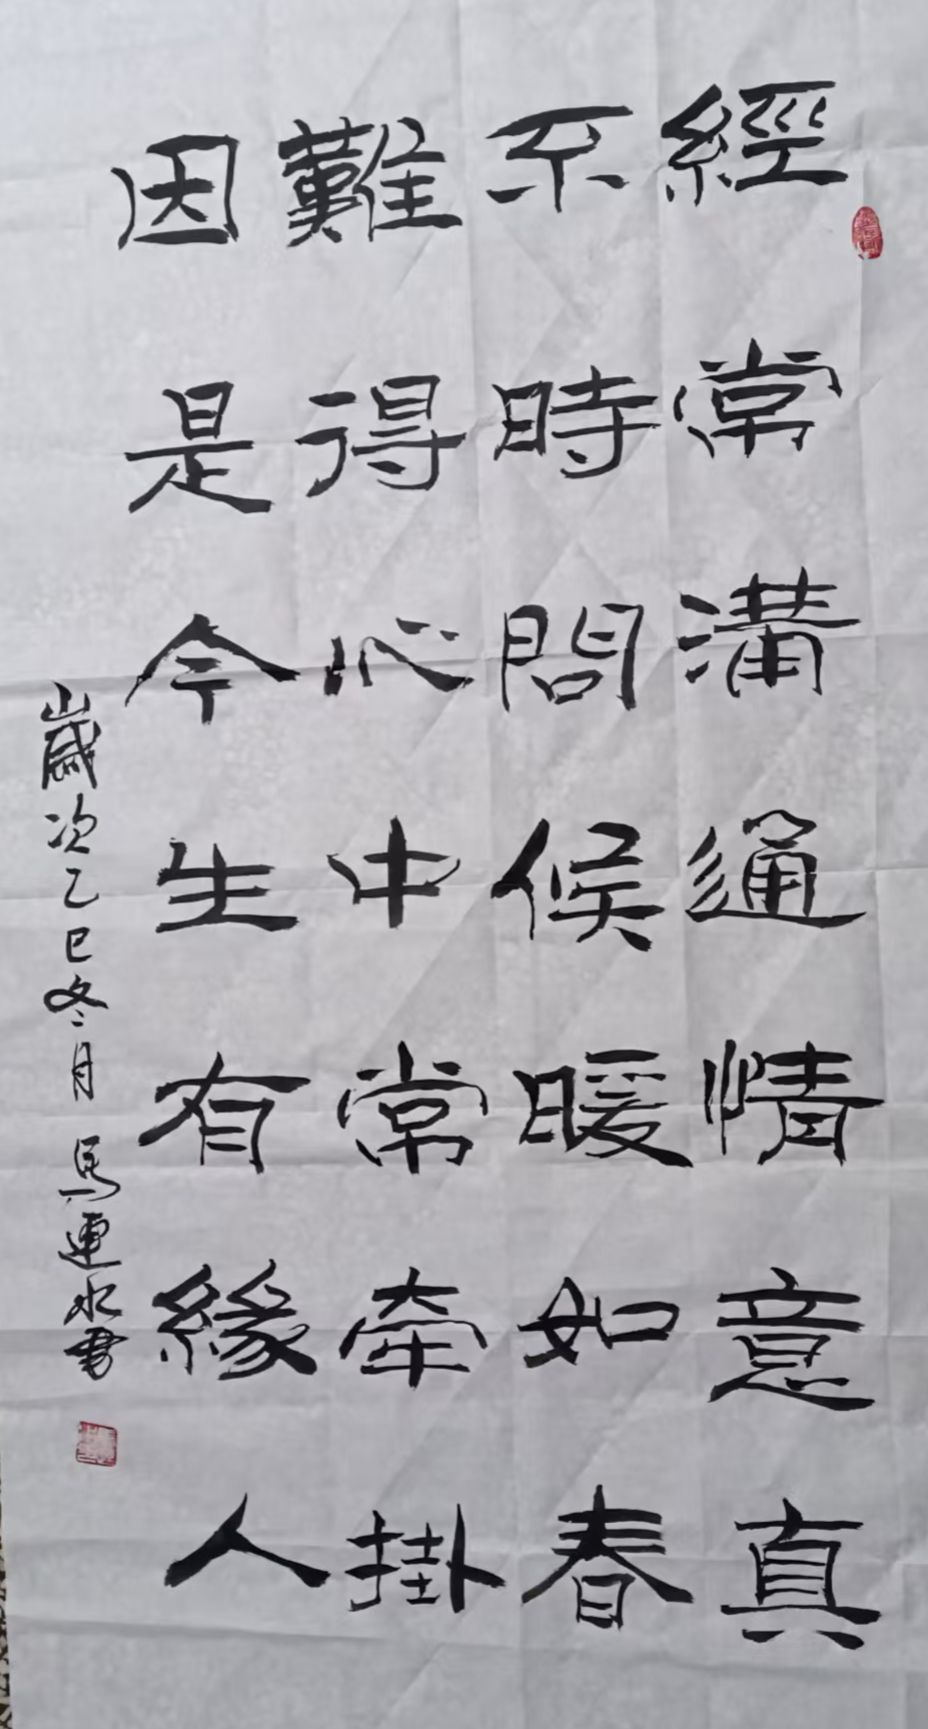 經常溝通情意真
不時問候暖如春
難得心中常牽掛
因是今生有緣人
歲次乙巳冬月 馬連水書